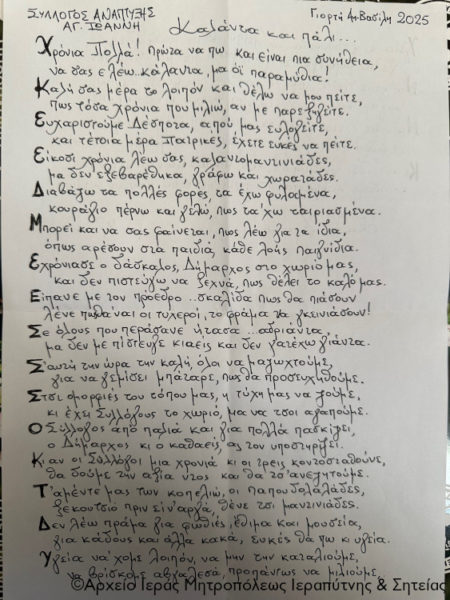 ΣΥΛΛΟΓΟΣ ΑΝΑΠΤΥΞΗΣ
ΑΓ. ΙΩΑΝΝΗ
Γιορτή Αη Βασίλη 2025
Καλάντα και πάλι...
Χρόνια Πολλά! πρώτα να πω και είναι πια συνήθεια,
να σας ε λέω.. κάλαντα, μα όϊ παραμύθια!
Καλή σας μέρα το λοιπόν και θέλω να μου πείτε,
πως τόσα χρόνια που μιλιώ, αν με παρεξηγείτε.
Ευχαριστούμε Δέσποτα, απού μας ευλογείτε,
και τέτοια μέρα Πατρικές, έχετε ευχές να πείτε.
Είκοσι χρόνια λέω σας, καλαντομαντινιάδες,
μα δεν εξεβαρέθηκα, γράφω και χωρατάδες.
Διαβάζω τα πολλές φορές, τα έχω φυλαμένα,
κουράγιο πέρνω και γελώ, πως τα'χω ταιριασμένα.
Μπορεί και να σας φαίνεται, πως λέω για τα ίδια,
όπως αρέσουν στα παιδιά, κάθε λοής παιγνίδια.
Εχρόνιασε ο δάσκαλος, Δήμαρχος στο χωριό μας,
και δεν πιστεύγω να ξεχνά, πως θέλει το καλό μας.
Είπανε με τον πρόεδρο ..σκαλίδα πως θα πιάσουν
λένε πως θα ναι οι τυχεροί, το φράμα να γκεινιάσουν!
Σε όλους που περάσανε ήτασσα ...αδριάντα,
μα δεν με πίστευγε κιαείς και δεν κατέχω γιάντα.
Σ'αυτή την ώρα την καλή, όλοι να μαζωχτούμε,
για να γεμίσει μπάταρε, πως θα προσευχηθούμε.
Στσι ομορφιές του τόπου μας, η τύχη μας να ζούμε,
κι έχει Συλλόγους το χωριό, μα να τσοι αγαπούμε.
Ο Σύλλογος από παλιά και για πολλά πασκίζει,
ο Δήμαρχος κι ο καθαείς, ας τον υποστηρίζει.
Κι αν οι Σύλλογοι μια χρονιά κι οι τρεις κοντοσταθούνε,
θα δούμε την αξία ντος και θα το'ανεζητούμε.
Τ'αμέντε μας των κοπελιώ, οι παπουδολαλάδες,
ξεκούτσιο πριν είν'αργά, θένε τσι μαντινιάδες.
Δεν λέω πράμα για φωθιές, έθιμα και μουσεία,
για κάδους και άλλα κακά, ευκές θα πω κι υγεία.
Υγεία να'χομε λοιπόν, να μην την καταλιούμε,
να βρίσκομε αβγαλεσά, προπάντως να μιλιούμε,
©Αρχείο Ιεράς Μητροπόλεως Ιεραπύτνης & Σητείας